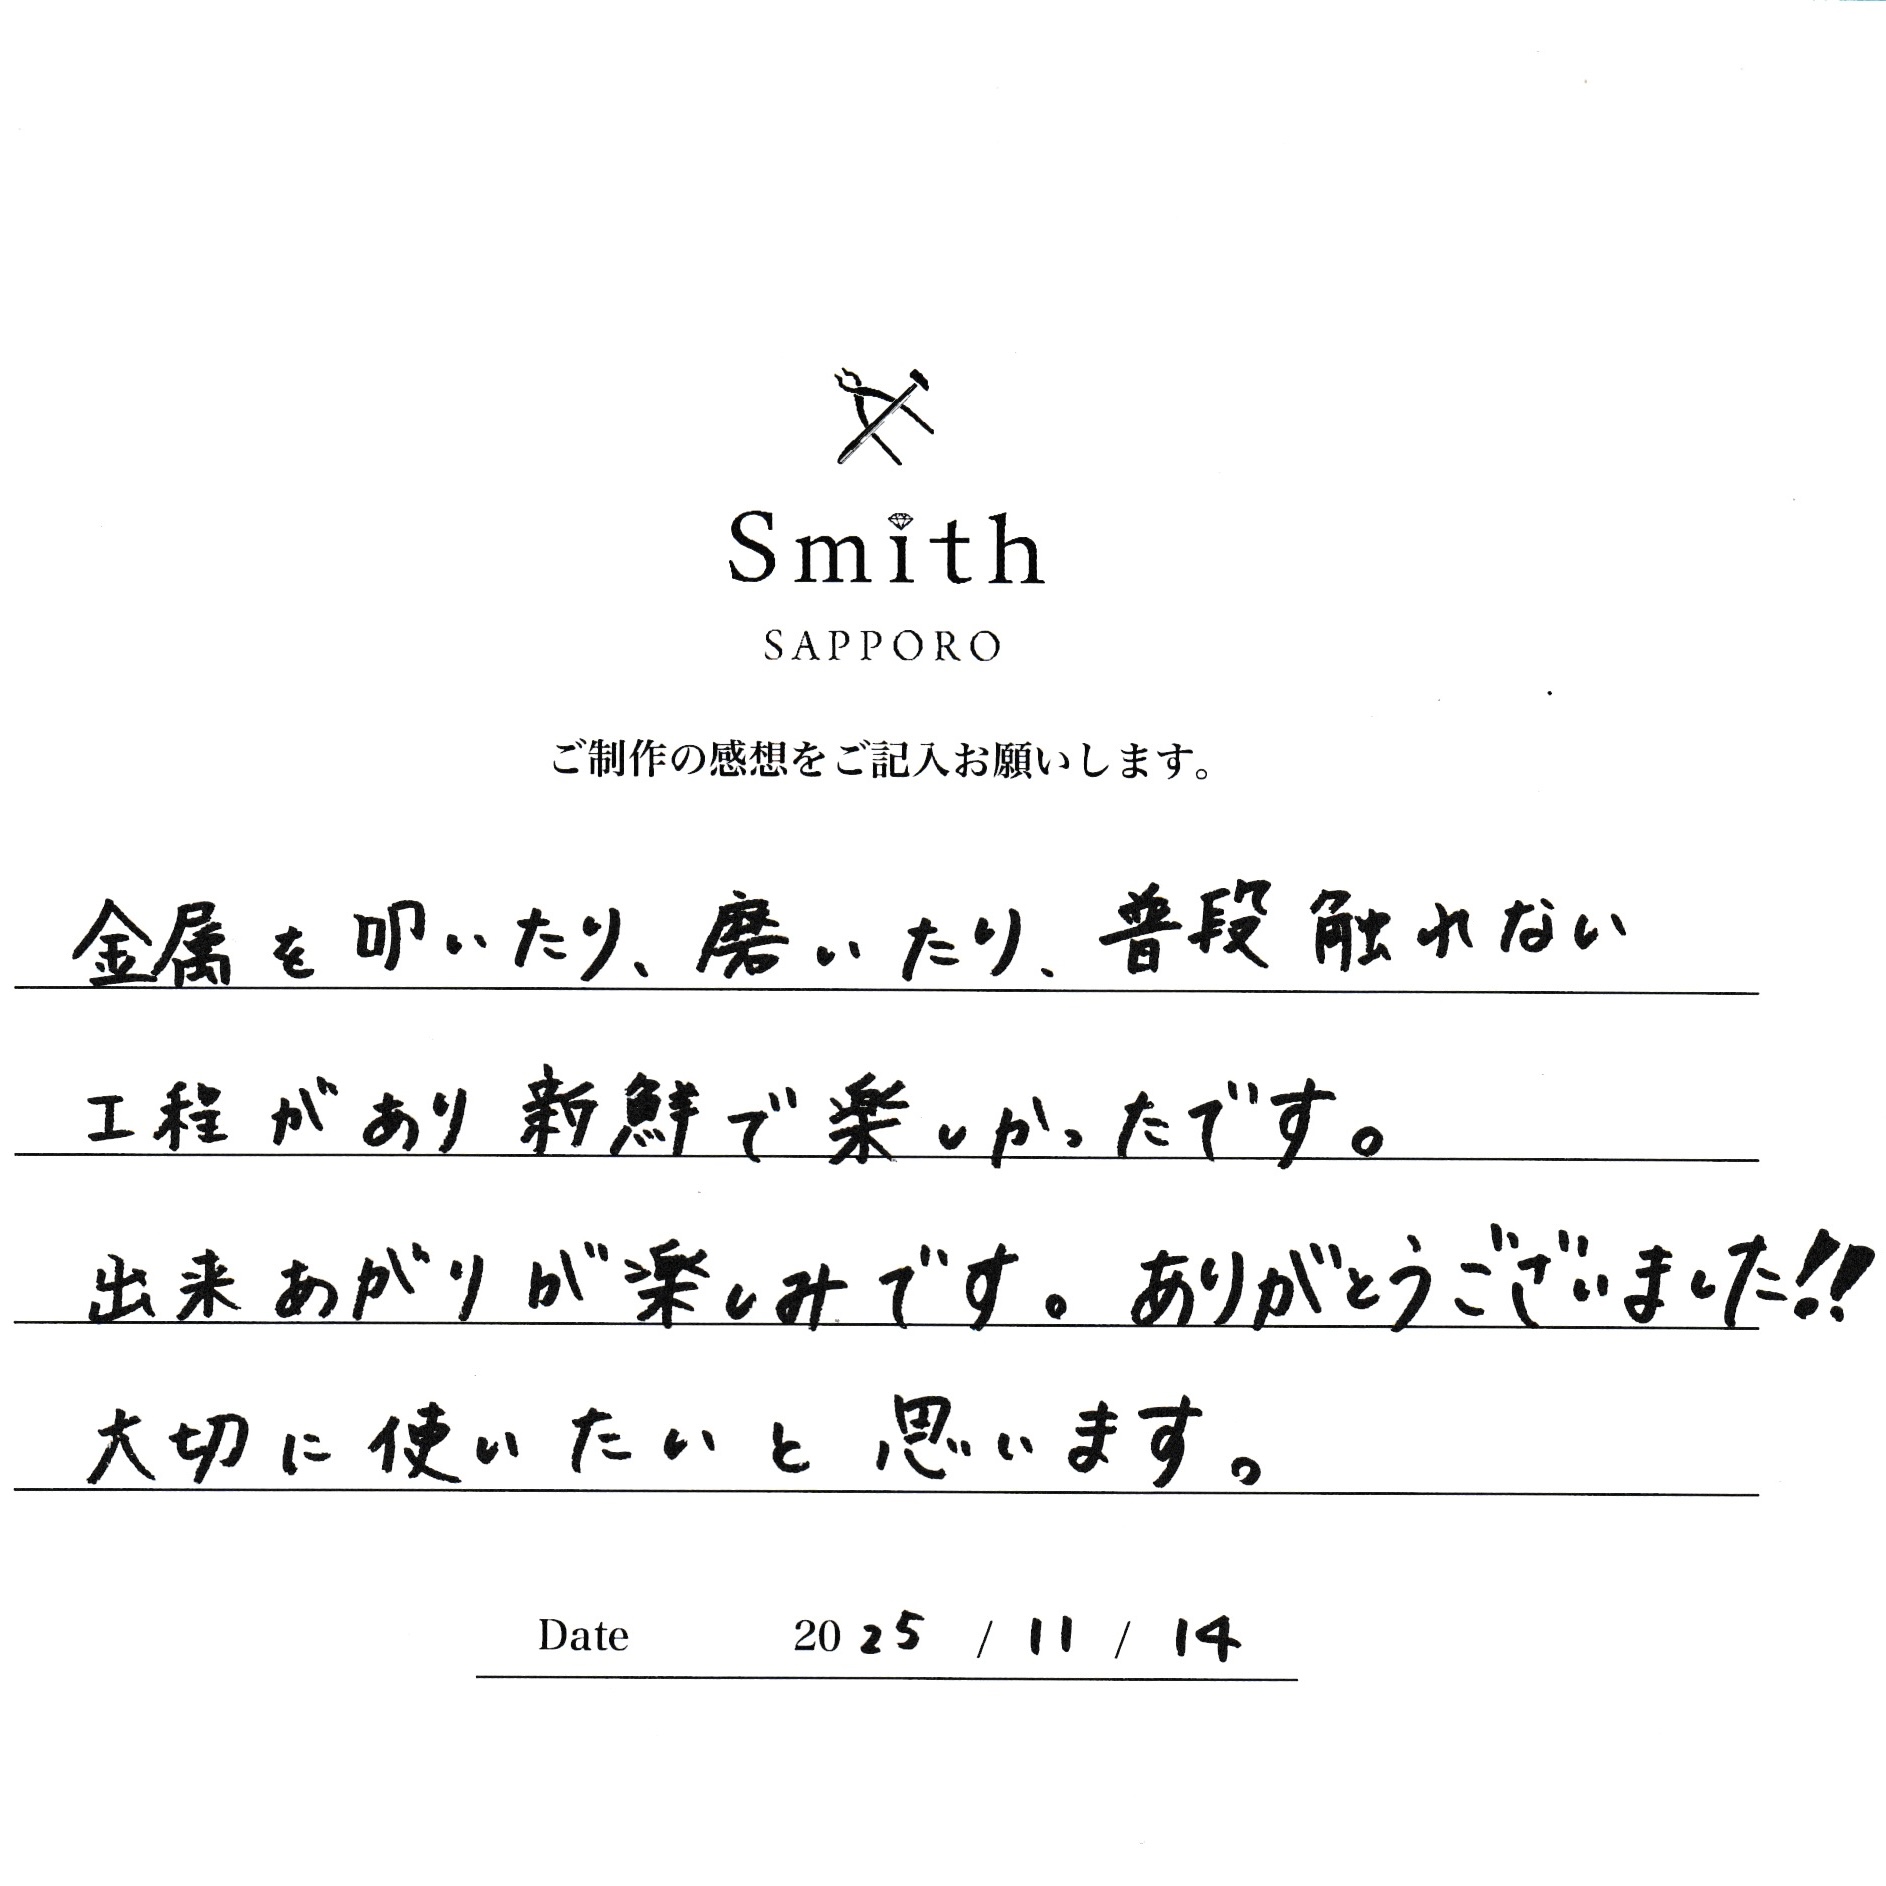 Smith
SAPPORO
ご制作の感想をご記入お願いします。
金属を叩いたり、磨いたり、普段触れない
工程があり新鮮で楽しかったです。
出来あがりが楽しみです。ありがとうございました!!
大切に使いたいと思います。
Date 2025 / 11 / 14